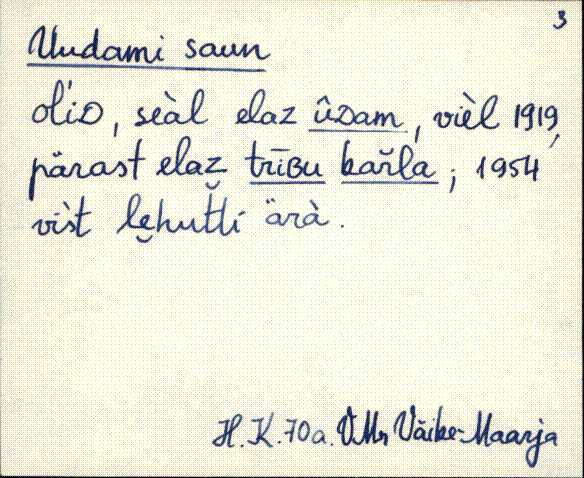 3
Uudami saun
oĺiD, seàl elaz ûDam, vièl 1919,
pärast elaz trīBu baŕla; 1954
vìst lęhutt̆i ärà.
H. K. 70a. VMr Väike-Maarja